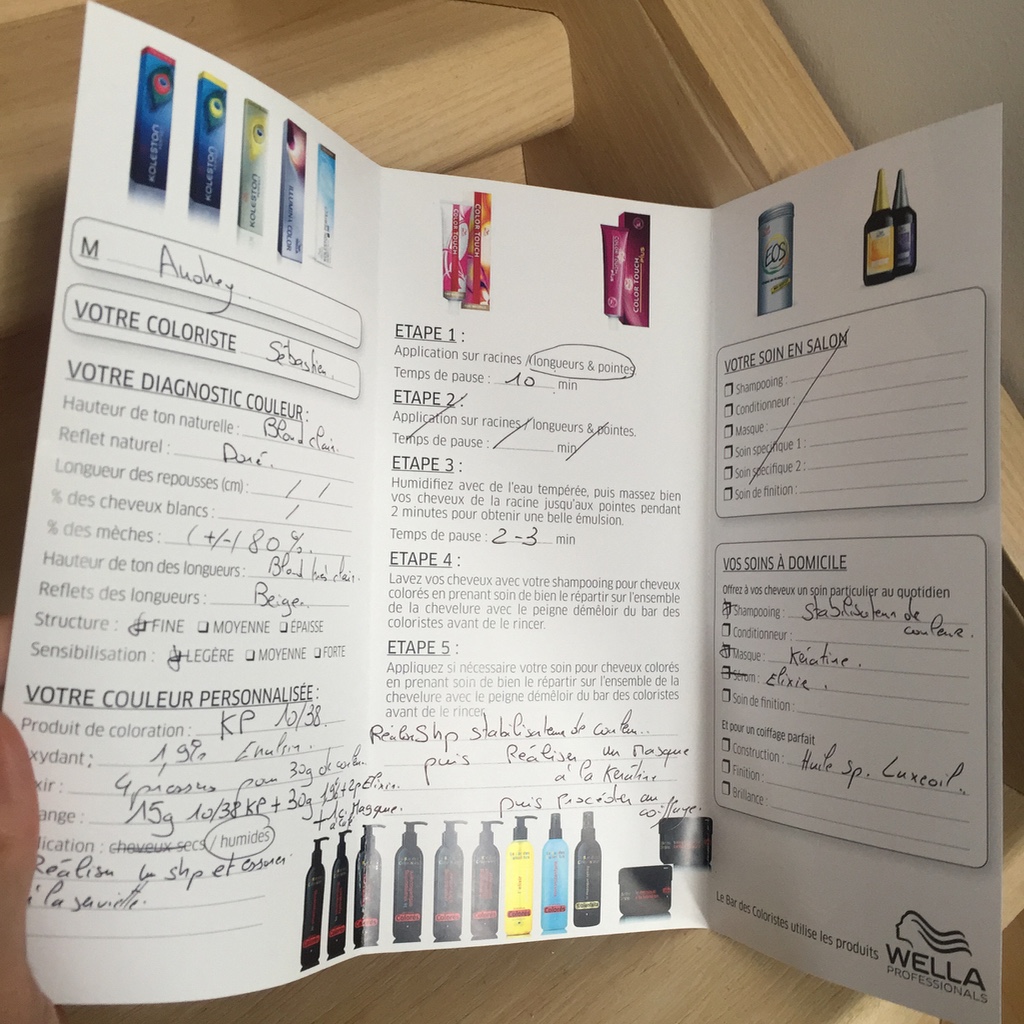 KOLESTON
KOLESTON
KOLESTON
ILLUMINA COLOR
M Audrey.
VOTRE COLORISTE Sébastien.
VOTRE DIAGNOSTIC COULEUR :
Hauteur de ton naturelle : Blond clair.
Reflet naturel : Doré.
Longueur des repousses (cm) : / /
% des cheveux blancs : /
% des mèches : (+/-) 80%.
Hauteur de ton des longueurs : Blond très clair.
Reflets des longueurs : Beige.
Structure : FINE MOYENNE ÉPAISSE
Sensibilisation : LEGÈRE MOYENNE FORTE
VOTRE COULEUR PERSONNALISÉE :
Produit de coloration : KP 10/38.
xydant : 1,9%
xir : 4 pour 30g de
ange : 15g 10/38 KP + 30g 1,9% + 2p Elixir.
+ Masque.
lication : cheveux secs / humides
Réaliser un shp et essorer
à la serviette.
COLOR TOUCH
COLOR TOUCH
COLOR TOUCH PLUS
ETAPE 1 :
Application sur racines / longueurs & pointes
Temps de pause : 10 min
ETAPE 2 :
Application sur racines / longueurs & pointes.
Temps de pause : min
ETAPE 3 :
Humidifiez avec de l'eau tempérée, puis massez bien
vos cheveux de la racine jusqu'aux pointes pendant
2 minutes pour obtenir une belle émulsion.
Temps de pause : 2-3 min
ETAPE 4 :
Lavez vos cheveux avec votre shampooing pour cheveux
colorés en prenant soin de bien le répartir sur l'ensemble
de la chevelure avec le peigne démêloir du bar des
coloristes avant de le rincer.
ETAPE 5 :
Appliquez si nécessaire votre soin pour cheveux colorés
en prenant soin de bien le répartir sur l'ensemble de la
chevelure avec le peigne démêloir du bar des coloristes
avant de le rincer.
Réaliser Shp stabilisateur de couleur.
puis Réaliser un Masque
à la Kératine
puis procéder au
coiffage.
EOS
VOTRE SOIN EN SALON
Shampooing :
Conditionneur :
Masque :
Soin spécifique 1 :
Soin spécifique 2 :
Soin de finition :
VOS SOINS À DOMICILE
Offrez à vos cheveux un soin particulier au quotidien
Shampooing : Stabilisateur de
couleur.
Conditionneur :
Masque : Kératine.
Sérum : Elixir.
Soin de finition :
Et pour un coiffage parfait
Construction : Huile Sp. Luxeoil.
Finition :
Brillance :
Le Bar des Coloristes utilise les produits
WELLA
PROFESSIONALS